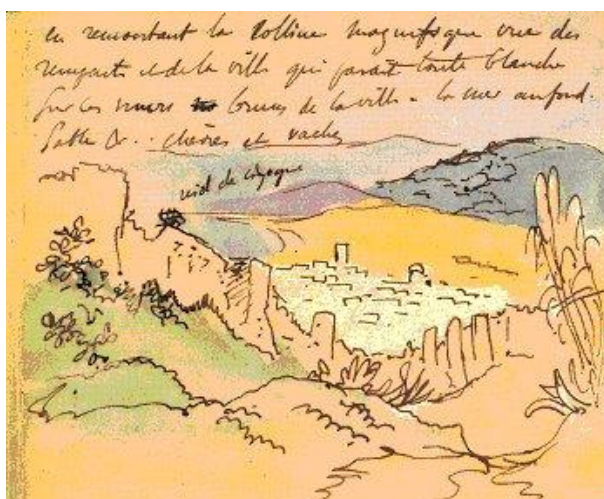 en remontant la Colline magnifique vue des
remparts et de la ville qui parait toute blanche
Sur ces murs bruns de la ville - la mer au fond.
Sable &. chèvres et vaches
nid de cigogne